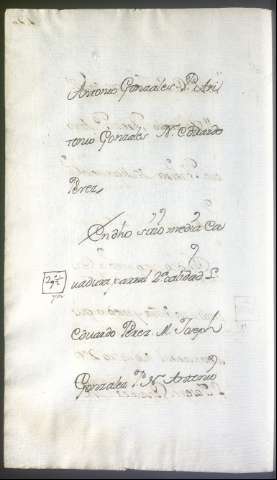 Antonio Gonzales P. An
tonio Gonzales N. Eduardo
Perez
En dho sitio media Ca
uadura parral 2ª calidad L.
Eduardo Perez M. Joseph
Gonzales P. N. Antonio